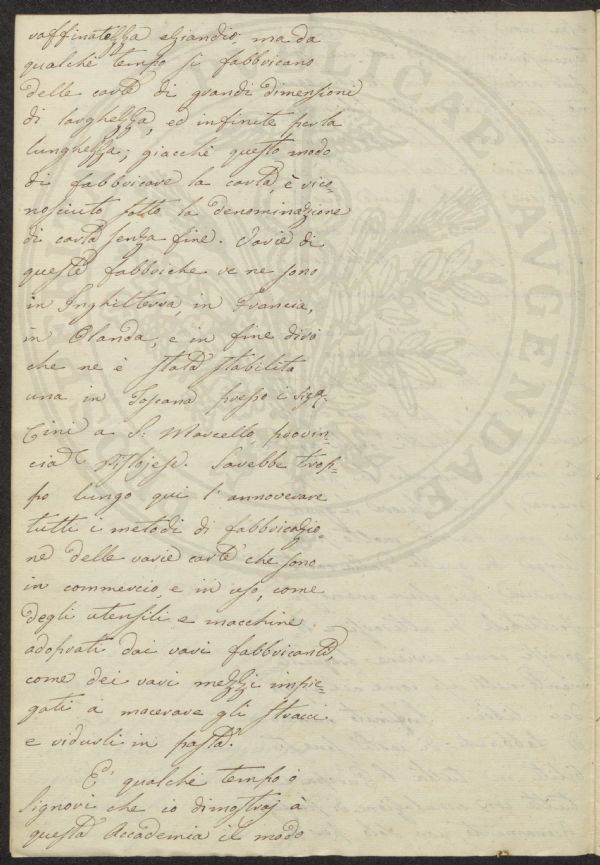 raffinatezza eziandio, ma da
qualche tempo si fabbricano
delle carte di grandi dimensione
di larghezza, ed infinite per la
lunghezza; giacchè questo modo
di fabbricare la carta, è rico=
nosciuto sotto la denominazione
di carta senza fine. Varie di
queste fabbriche ve ne sono
in Inghilterra, in Francia,
in Olanda, e in fine dirò
che ne è stata stabilita
una in Toscana presso i Sigri
Cini a S: Marcello, provin=
cia Pistojese. Sarebbe trop=
po lungo qui l'annoverare
tutti i metodi di fabbricazio=
ne delle varie carte che sono
in commercio, e in uso, come
degli utensili e macchine
adoprati dai vari fabbricanti,
come dei vari mezzi impie=
gati a macerare gli stracci
e ridurli in pasta.
E' qualche tempo o
Signori che io dimostraj à
questa Accademia il modo
PUBLICAE AUGENDAE